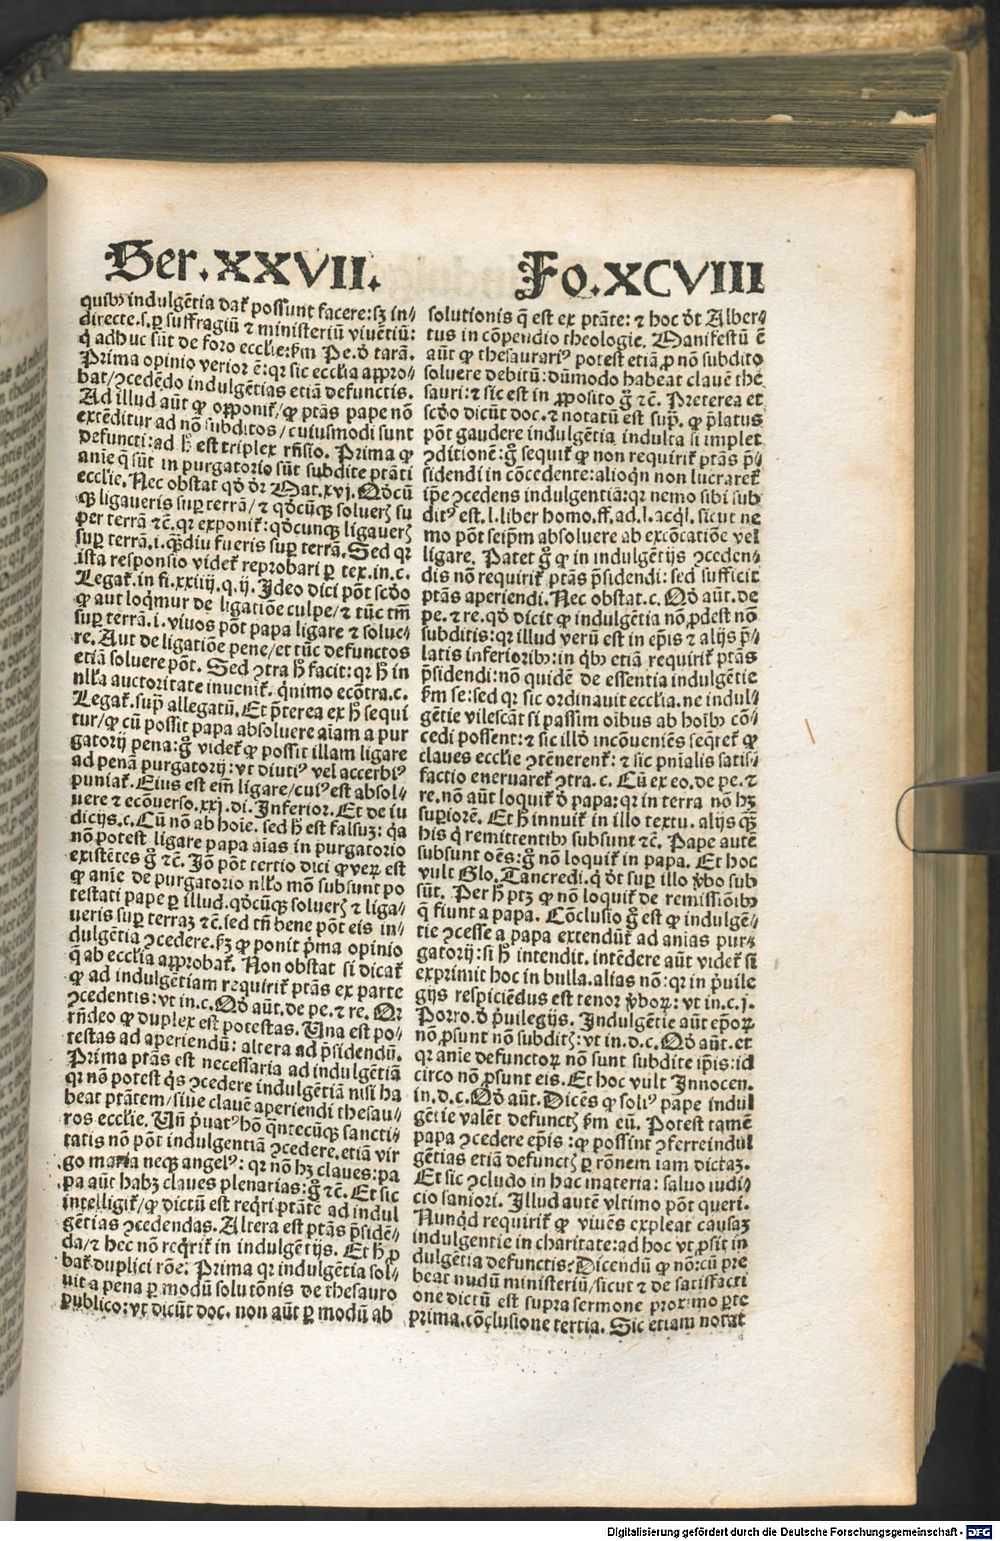 Ser. XXVII.
Fo. XCVIII
quibꝫ indulgẽtia dat᷑ possunt facere: sꝫ in⸗
directe. s. ꝑ suffragiũ ⁊ ministeriũ viuẽtiũ:
q̇ adhuc sũt de foro eccl̃ie: fm̃ Pe. ð tarã.
Prima opinio verior ẽ: qꝛ sic eccl̃ia aꝓro⸗
bat / ꝯcedẽdo indulgẽtias etiã defunctis.
Ad illud aũt ꝙ opponit᷑ / ꝙ ptãs pape nõ
extẽditur ad nõ subditos / cuiusmodi sunt
defuncti: ad h̃ est triplex rñsio. Prima ꝙ
anie q̃ sũt in purgatorio sũt subdite ptãti
eccl̃ie. Nec obstat qð ðr Mat. xvj. Qðcũ
qꝫ ligaueris suꝑ terrã / ⁊ qðcũqꝫ soluerꝭ su
per terrã ⁊c̃. qꝛ exponit᷑: qðcunqꝫ ligauerꝭ
suꝑ terrã. i. qꝫdiu fueris suꝑ terrã. Sed qꝛ
ista responsio videt᷑ reprobari ꝑ tex. in. c.
Legat᷑. in fi. xxiiij. q. ij. Ideo dici põt scðo
ꝙ aut loq̃mur de ligatiõe culpe / ⁊ tũc tm̃
suꝑ terrã. i. viuos põt papa ligare ⁊ solue⸗
re. Aut de ligatiõe pene / et tũc defunctos
etiã soluere põt. Sed ꝯtra h̃ facit: qꝛ h̃ in
nll̃a auctoritate inuenit᷑. q̇nimo ecõtra. c.
Legat᷑. suꝑ allegatũ. Et p̃terea ex h̃ sequi
tur / ꝙ cũ possit papa absoluere aĩam a pur
gatorij pena: g̃ videt᷑ ꝙ possit illam ligare
ad penã purgatorij: vt diutiꝰ vel accerbiꝰ
puniat᷑. Eius est em̃ ligare / cuiꝰ est absol⸗
uere ⁊ ecõuerso. xxj. di. Inferior. Et de iu
dicijs. c. Cũ nõ ab hoĩe. sed h̃ est falsuꝫ: q̇a
nõ potest ligare papa aĩas in purgatorio
existẽtes g̃ ⁊c̃. Iõ põt tertio dici ꝙ veꝝ est
ꝙ anie de purgatorio nll̃o mõ subsunt po
testati pape ꝑ illud. qðcũqꝫ soluerꝭ ⁊ liga⸗
ueris suꝑ terraꝫ ⁊c̃. sed tñ bene põt eis in⸗
dulgẽtia ꝯcedere. fꝫ ꝙ ponit p̃ma opinio
q̃ ab eccl̃ia aꝓrobat᷑. Non obstat si dicat᷑
ꝙ ad indulgẽtiam requirit᷑ ptãs ex parte
ꝯcedentis: vt in. c. Qð aũt. de pe. ⁊ re. Qꝛ
rñdeo ꝙ duplex est potestas. Una est po⸗
testas ad aperiendũ: altera ad p̃sidendũ.
Prima ptãs est necessaria ad indulgẽtiã
qꝛ nõ potest q̇s ꝯcedere indulgẽtiã nisi ha
beat ptãtem / siue clauẽ aperiendi thesau⸗
ros eccl̃ie. Uñ p̃uatꝰ hõ q̃ntecũqꝫ sancti⸗
tatis nõ põt indulgentiã ꝯcedere. etiã vir
go maria neqꝫ angelꝰ: qꝛ nõ hꝫ claues: pa
pa aũt habꝫ claues plenarias: g̃ ⁊c̃. Et sic
intelligit᷑ / ꝙ dictũ est req̇ri ptãtẽ ad indul
gẽtias ꝯcedendas. Altera est ptãs p̃sidẽ⸗
da / ⁊ hec nõ req̇rit᷑ in indulgẽtijs. Et h̃ ꝓ
bat᷑ duplici rõe. Prima qꝛ indulgẽtia sol⸗
uit a pena ꝑ modũ solutõnis de thesauro
publico: vt dicũt doc. non aũt ꝑ modũ ab
solutionis q̃ est ex ptãte: ⁊ hoc ðt Alber⸗
tus in cõpendio theologie. Manifestũ ẽ
aũt ꝙ thesaurariꝰ potest etiã ꝓ nõ subdito
soluere debitũ: dũmodo habeat clauẽ the
sauri: ⁊ sic est in ꝓposito g̃ ⁊c̃. Preterea et
scðo dicũt doc. ⁊ notatũ est suꝑ. ꝙ p̃latus
põt gaudere indulgẽtia indulta si implet
ꝯditionẽ: g̃ sequit᷑ ꝙ non requirit᷑ ptãs p̃⸗
sidendi in cõcedente: alioq̇n non lucraret᷑
ip̃e ꝯcedens indulgentiã: qꝛ nemo sibi sub
ditꝰ est. l. liber homo. ff. ad. l. acq̇l. sicut ne
mo põt seip̃m absoluere ab excõcatiõe vel
ligare. Patet g̃ ꝙ in indulgẽtijs ꝯceden⸗
dis nõ requirit᷑ ptãs p̃sidendi: sed sufficit
ptãs aperiendi. Nec obstat. c. Qð aũt. de
pe. ⁊ re. qð dicit ꝙ indulgẽtia nõ ꝓdest nõ
subditis: qꝛ illud verũ est in ep̃is ⁊ alijs p̃⸗
latis inferioribꝫ: in q̇bꝫ etiã requirit᷑ ptãs
p̃sidendi: nõ quidẽ de essentia indulgẽtie
fm̃ se: sed qꝛ sic ordinauit eccl̃ia. ne indul⸗
gẽtie vilescãt si passim oĩbus ab hoĩbꝫ cõ⸗
cedi possent: ⁊ sic illð incõueniẽs seq̃ret᷑ ꝙ
claues eccl̃ie ꝯtẽnerent᷑: ⁊ sic pñialis satis⸗
factio eneruaret᷑ ꝯtra. c. Cũ ex eo. de pe. ⁊
re. nõ aũt loquit᷑ ð papa: qꝛ in terra nõ hꝫ
suꝑiorẽ. Et h̃ innuit᷑ in illo textu. alijs qꝫ
his q̇ remittentibꝫ subsunt ⁊c̃. Pape autẽ
subsunt oẽs: g̃ nõ loquit᷑ in papa. Et hoc
vult Glo. Tancredi. q̇ ðt suꝑ illo ṽbo sub
sũt. Per h̃ ptꝫ ꝙ nõ loquit᷑ de remissiõibꝫ
q̃ fiunt a papa. Cõclusio g̃ est ꝙ indulgẽ⸗
tie ꝯcesse a papa extendũt᷑ ad anias pur⸗
gatorij: si h̃ intendit. intẽdere aũt videt᷑ si
exprimit hoc in bulla. alias nõ: qꝛ in p̃uile
gijs respiciẽdus est tenor ṽboꝝ: vt in. c. j.
Porro. ð p̃uilegijs. Indulgẽtie aũt ep̃oꝝ
nõ ꝓsunt nõ subditꝭ: vt in. d. c. Qð aũt. et
qꝛ anie defunctoꝝ nõ sunt subdite ip̃is: id
circo nõ ꝓsunt eis. Et hoc vult Innocen.
in. d. c. Qð aũt. Dicẽs ꝙ soliꝰ pape indul
gẽtie valẽt defunctꝭ fm̃ eũ. Potest tamẽ
papa ꝯcedere ep̃is: ꝙ possint ꝯferre indul
gẽtias etiã defunctꝭ ꝑ rõnem iam dictaꝫ.
Et sic ꝯcludo in hac materia: saluo iudi⸗
cio saniori. Illud autẽ vltimo põt queri.
Nunq̇d requirit᷑ ꝙ viuẽs expleat causaꝫ
indulgentie in charitate: ad hoc vt ꝓsit in
dulgẽtia defunctis? Dicendũ ꝙ nõ: cũ pre
beat nudũ ministeriũ / sicut ⁊ de satisfacti
one dictũ est supra sermone proximo ꝑte
prima. cõclusione tertia. Sic etiam notat
Digitalisierung gefördert durch die Deutsche Forschungsgemeinschaft - DFG